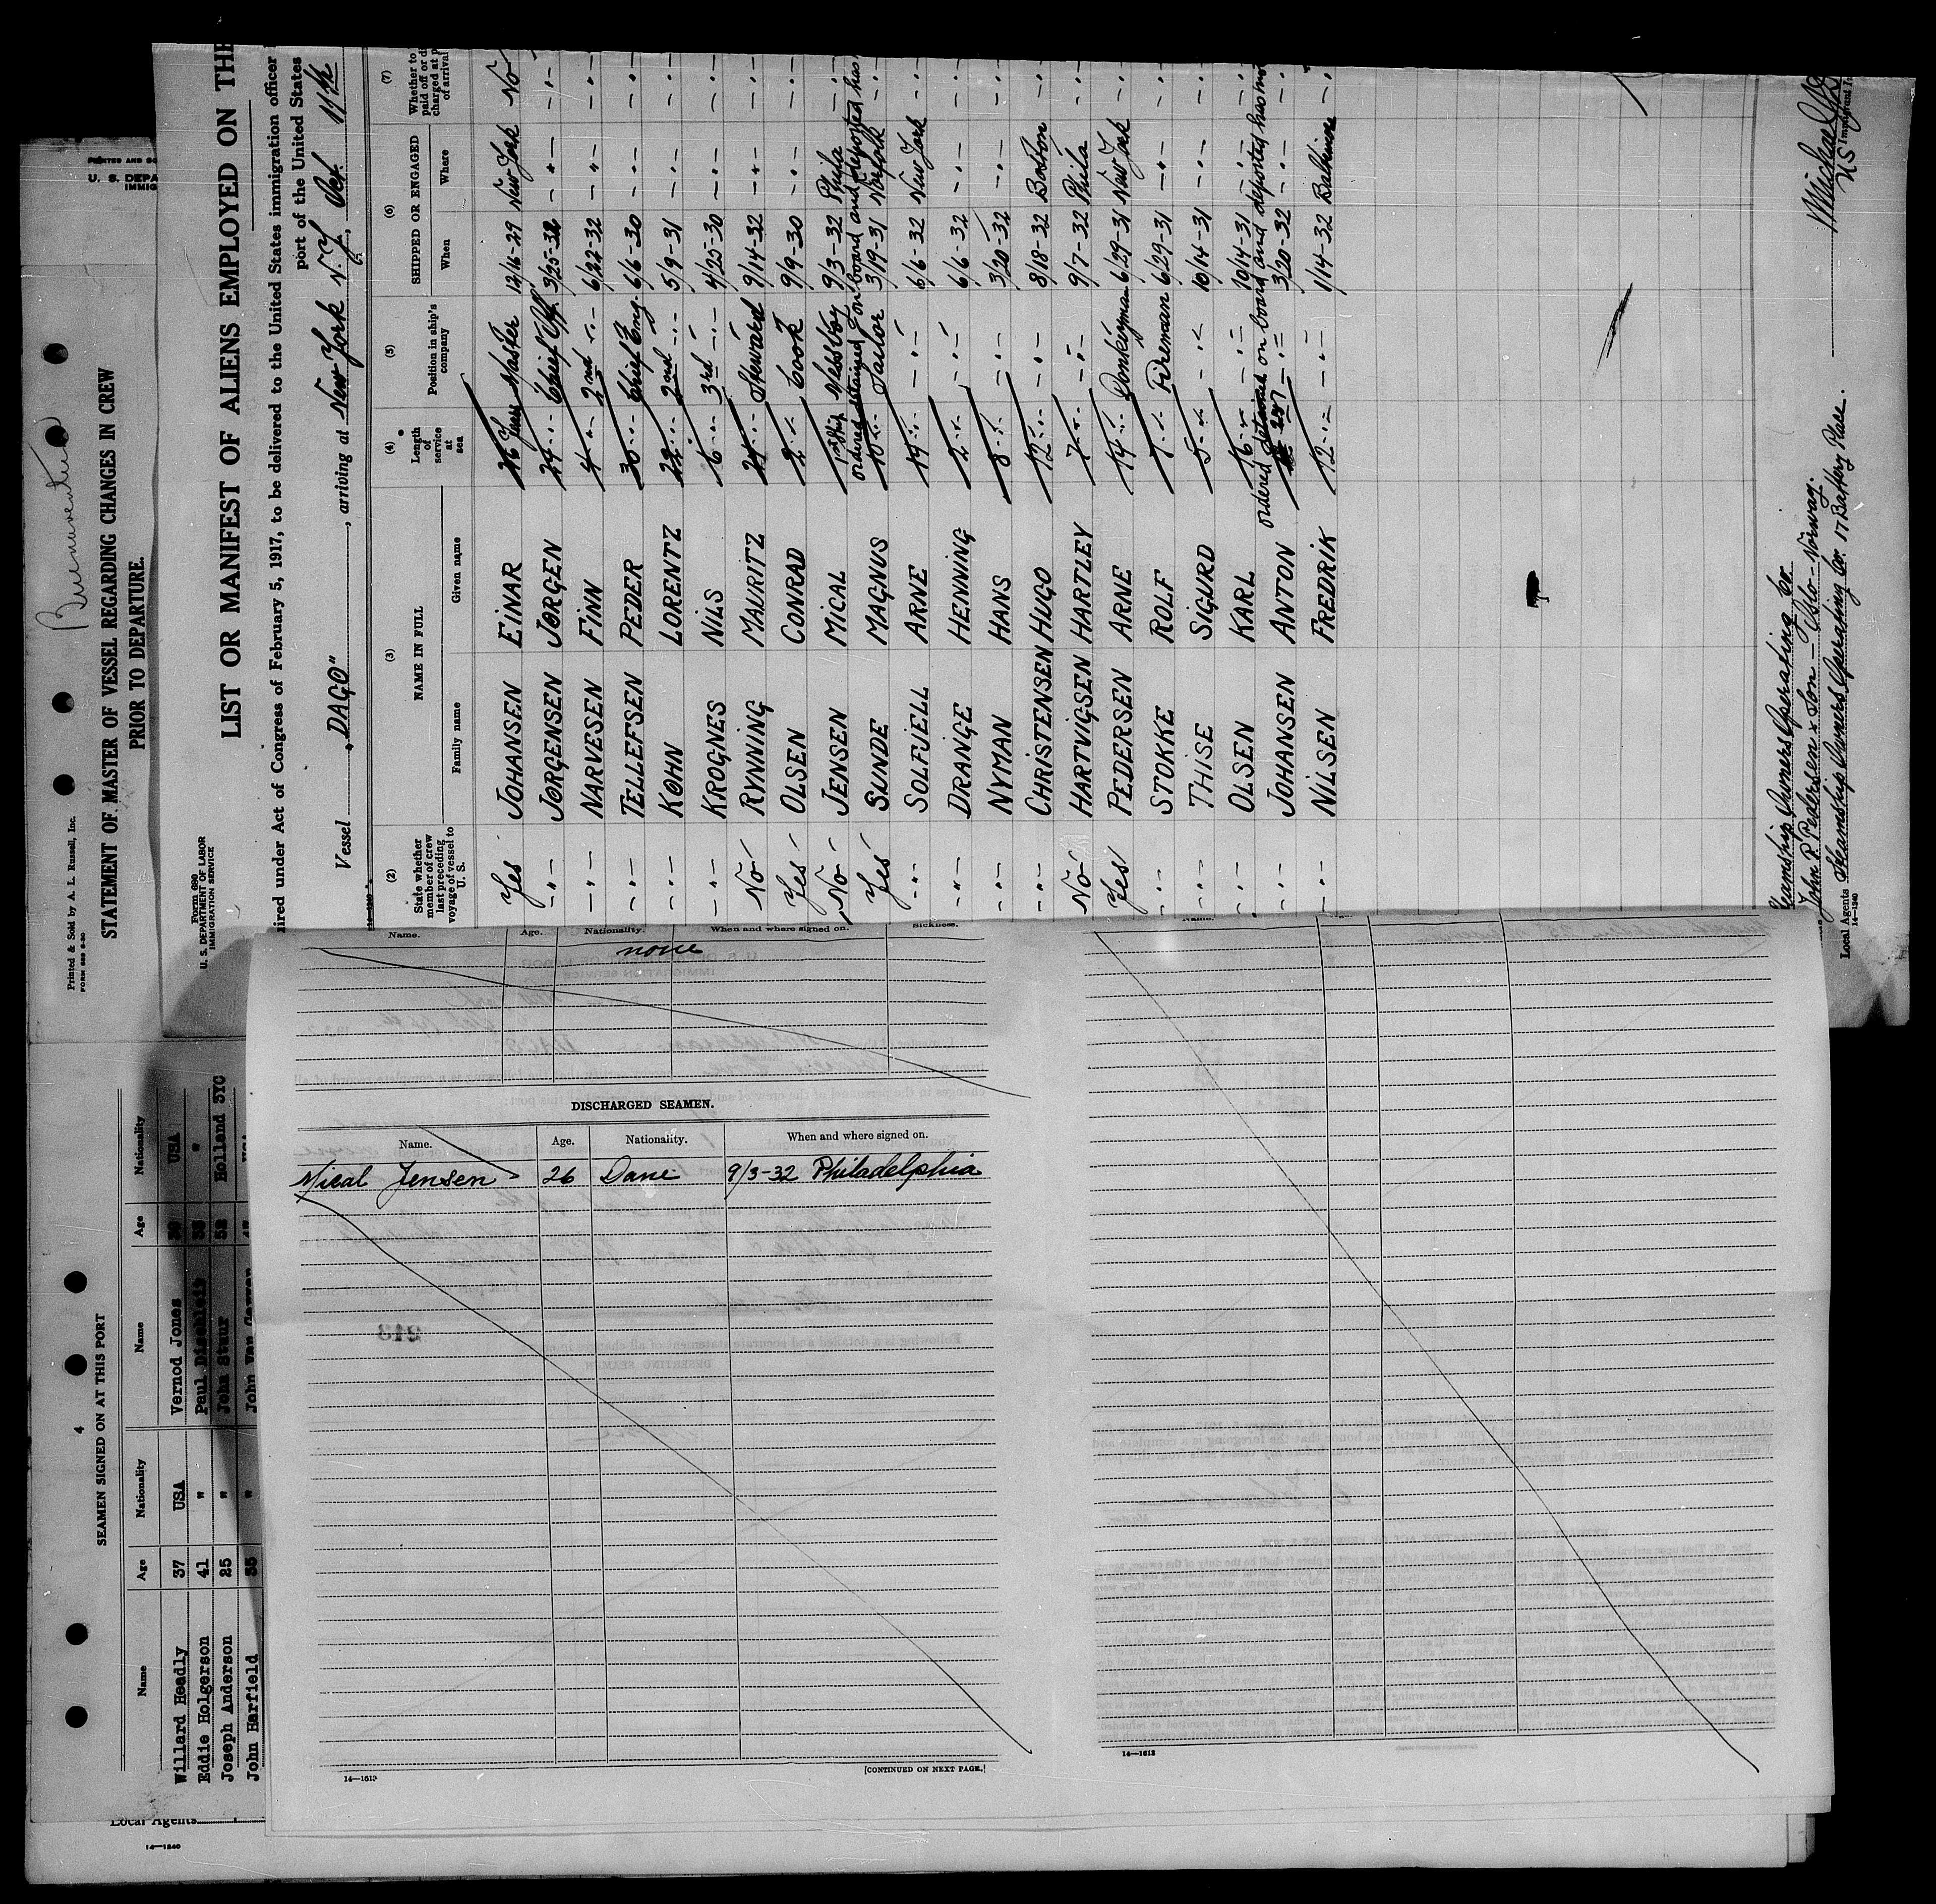 Buenaventura
PRINTED AND SO
U. S. DEPA
IMMIG
Printed & Sold by A. L. Russell, Inc.
FORM 689 8-30
STATEMENT OF MASTER OF VESSEL REGARDING CHANGES IN CREW
PRIOR TO DEPARTURE.
4
SEAMEN SIGNED ON AT THIS PORT
Name Age Nationality Name Age Nationality
Willard Headly 37 USA Vernod Jones USA
Eddie Holgerson 41 " Paul "
Joseph Anderson 25 " John Stuur 52 Holland
John Harfield 35 " John Van
Local Agents
14—1240
Form 690
U. S. DEPARTMENT OF LABOR
IMMIGRATION SERVICE
LIST OR MANIFEST OF ALIENS EMPLOYED ON THE
ired under Act of Congress of February 5, 1917, to be delivered to the United States immigration officer
port of the United States
Vessel "DAGO", arriving at New York N.Y., Oct. 11th
(2) (3) (4) (5) (6) (7)
State whether member of crew last preceding voyage of vessel to U. S.
NAME IN FULL
Family name Given name
Length of service at sea
Position in ship's company
SHIPPED OR ENGAGED
When Where
Whether to paid off or di charged at p of arrival
Yes JOHANSEN EINAR 26 Years Master 12/16-29 New York No
-"- JØRGENSEN JØRGEN 24 -"- Chief Off. 3/25-32 -"- -"-
-"- NARVESEN FINN 4 -"- 2nd -"- 6/22-32 -"- -"-
-"- TELLEFSEN PEDER 30 -"- Chief Eng. 6/6-30 -"- -"-
-"- KØHN LORENTZ 22 -"- 2nd -"- 5/9-31 -"- -"-
-"- KROGNES NILS 6 -"- 3rd -"- 4/25-30 -"- -"-
No RYNNING MAURITZ 24 -"- Steward 9/14-32 -"- -"-
Yes OLSEN CONRAD 2 -"- Cook 9/9-30 -"- -"-
No JENSEN MICAL 1st ship Messboy 9/3-32 Phila -"-
ordered detained on board and deported has
Yes SUNDE MAGNUS 10 -"- Sailor 3/19-31 Norfolk -"-
-"- SOLFJELL ARNE 14 -"- -"- 6/6-32 New York -"-
-"- DRANGE HENNING 2 -"- -"- 6/6-32 -"- -"-
-"- NYMAN HANS 8 -"- 3/20-32 -"- -"-
-"- CHRISTENSEN HUGO 12 -"- -"- 8/18-32 Boston -"-
No HARTVIGSEN HARTLEY 7 -"- -"- 9/7-32 Phila -"-
Yes PEDERSEN ARNE 14 -"- Donkeyman 6/29-31 New York -"-
-"- STOKKE ROLF 7 -"- Fireman 6/29-31 -"- -"-
-"- THISE SIGURD 5 -"- -"- 10/14-31 -"- -"-
-"- OLSEN KARL 16 -"- -"- 10/14-31 -"- -"-
ordered detained on board and deported has
-"- JOHANSEN ANTON -"- 3/20-32 -"- -"-
-"- NILSEN FREDRIK 12 -"- -"- 1/14-32 Baltimore -"-
Steamship Owners Operating Co.
John P. Pedersen & Son - Oslo - Norway.
Local Agents Steamship Owners Operating Co. 17 Battery Place.
14—1240
Michael
US Immigrant
Name. Age. Nationality. When and where signed on. Sickness.
none
DISCHARGED SEAMEN.
Name. Age. Nationality. When and where signed on.
Mical Jensen 26 Dane 9/3-32 Philadelphia
14—1613
[CONTINUED ON NEXT PAGE.]
14—1613